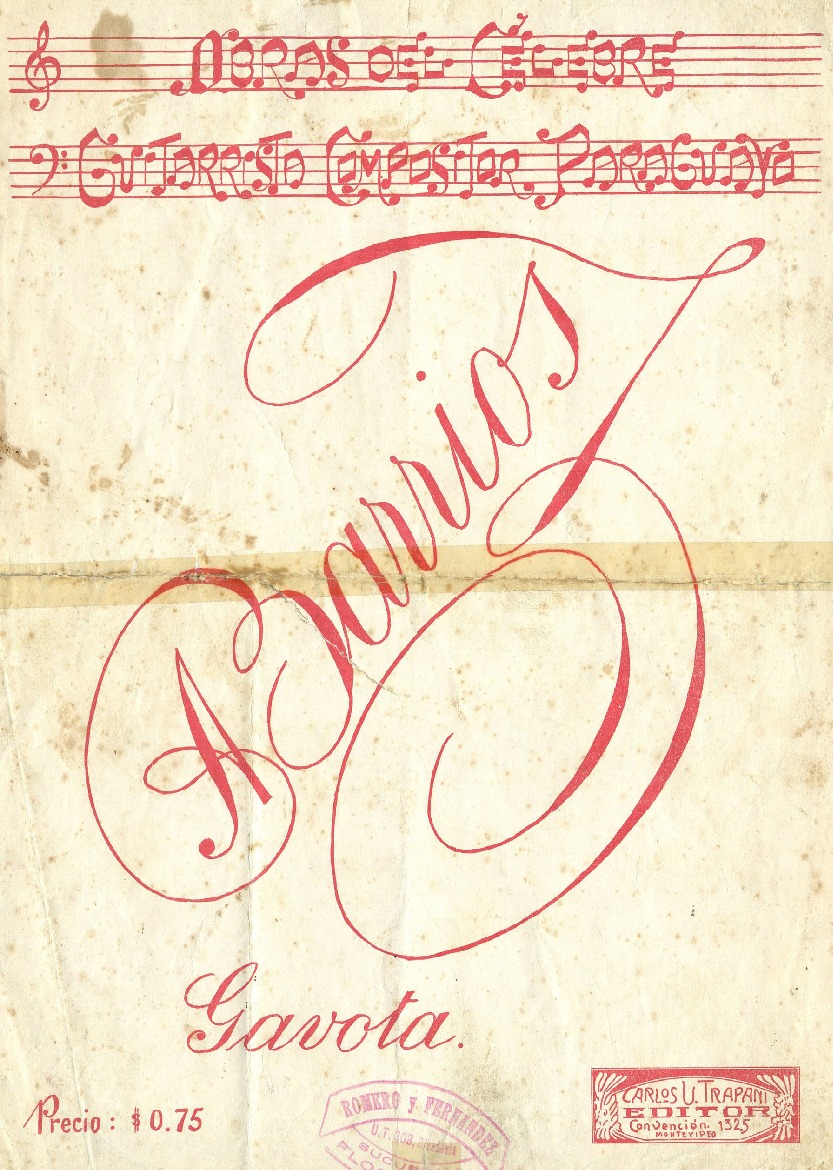 OBRAS DEL CÉLEBRE
GUITARRISTA COMPOSITOR PARAGUAYO
A Barrios
Gavota.
Precio: $ 0.75
ROMERO y FERNANDEZ
CARLOS U. TRAPANI
EDITOR
Convención. 1325
MONTEVIDEO